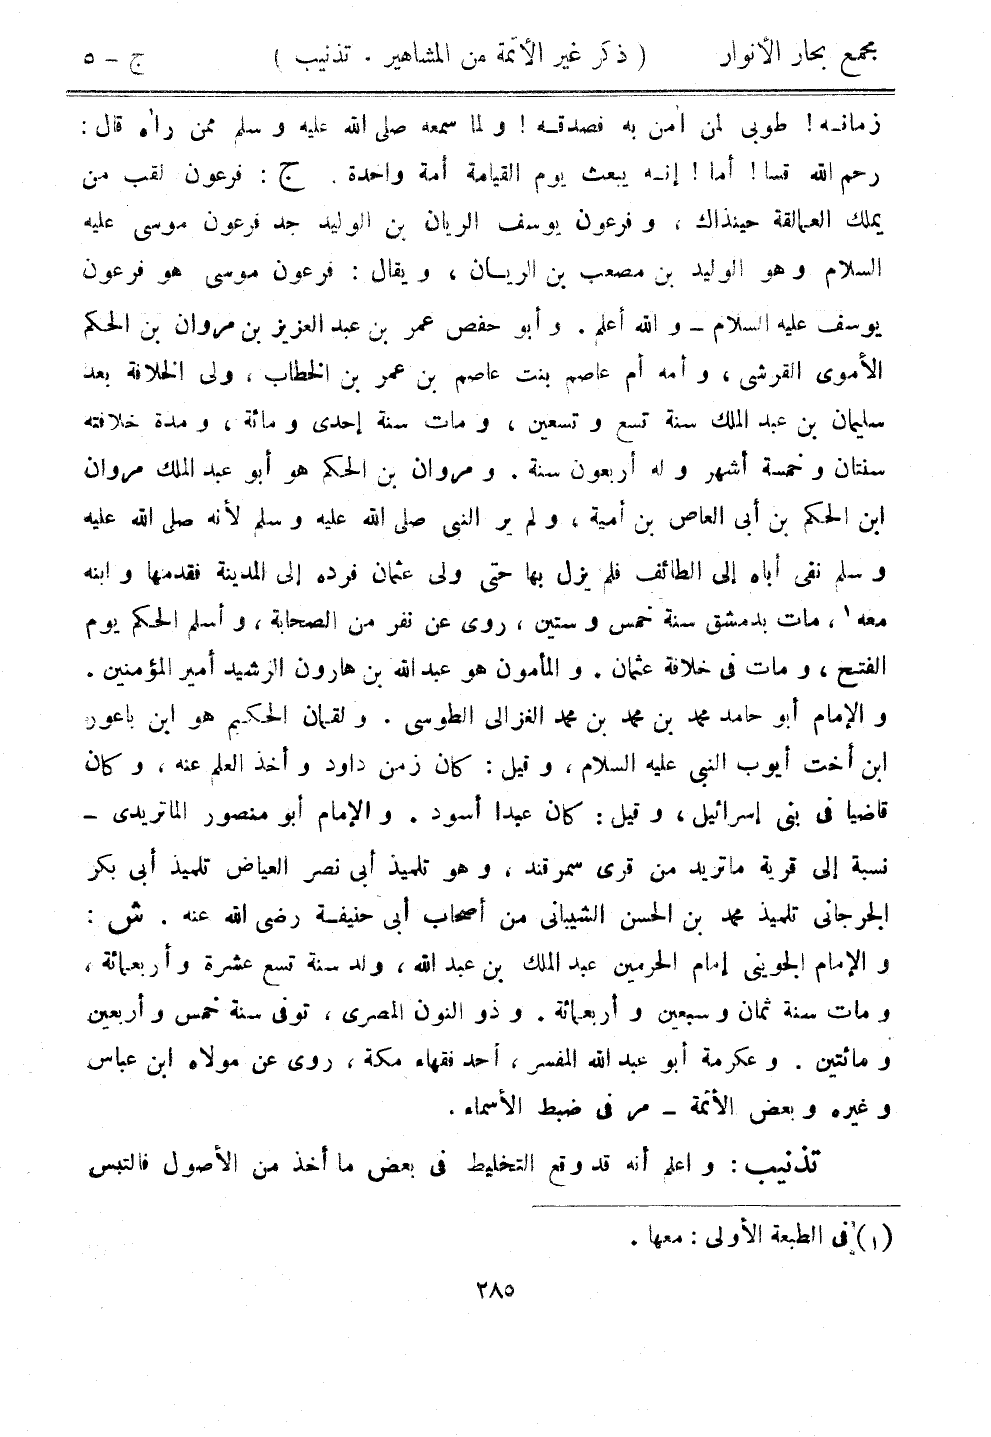 مجمع بحار الأنوار ( ذكر غير الأئمة من المشاهير . تذنيب ) ج - ٥
زمانه ! طوبى لمن أمن به فصدقه ! و لما سمعه صلى الله عليه و سلم ممن رأه قال :
رحم الله قسا ! أما ! إنه يبعث يوم القيامة أمة واحدة . ج : فرعون لقب من
يملك العمالقة حينذاك ، و فرعون يوسف الريان بن الوليد جد فرعون موسى عليه
السلام و هو الوليد بن مصعب بن الريان ، و يقال : فرعون موسى هو فرعون
يوسف عليه السلام - و الله أعلم . و أبو حفص عمر بن عبد العزيز بن مروان بن الحكم
الأموى القرشى ، و أمه أم عاصم بنت عاصم بن عمر بن الخطاب ، ولى الخلافة بعد
سليمان بن عبد الملك سنة تسع و تسعين ، و مات سنة إحدى و مائة ، و مدة خلافته
سنتان و خمسة أشهر و له أربعون سنة . و مروان بن الحكم هو أبو عبد الملك مروان
ابن الحكم بن أبى العاص بن أمية ، و لم ير النبى صلى الله عليه و سلم لأنه صلى الله عليه
و سلم نفى أباه إلى الطائف فلم يزل بها حتى ولى عثمان فرده إلى المدينة فقدمها و ابنه
معه ١ ، مات بدمشق سنة خمس و ستين ، روى عن نفر من الصحابة ، و أسلم الحكم يوم
الفتح ، و مات فى خلافة عثمان . و المأمون هو عبد الله بن هارون الرشيد أمير المؤمنين .
و الإمام أبو حامد محمد بن محمد بن محمد الغزالى الطوسى . و لقمان الحكيم هو ابن باعور
ابن أخت أيوب النبي عليه السلام ، و قيل : كان زمن داود و أخذ العلم عنه ، و كان
قاضيا فى بنى إسرائيل ، و قيل : كان عبدا أسود . و الإمام أبو منصور الماتريدى -
نسبة إلى قرية ماتريد من قرى سمرقند ، و هو تلميذ أبى نصر العياض تلميذ أبى بكر
الجرجانى تلميذ محمد بن الحسن الشيبانى من أصحاب أبى حنيفة رضى الله عنه . ش :
و الإمام الجوينى إمام الحرمين عبد الملك بن عبد الله ، ولد سنة تسع عشرة و أربعمائة ،
و مات سنة ثمان و سبعين و أربعمائة . و ذو النون المصرى ، توفى سنة خمس و أربعين
و مائتين . و عكرمة أبو عبد الله المفسر ، أحد فقهاء مكة ، روى عن مولاه ابن عباس
و غيره و بعض الأئمة - مر فى ضبط الأسماء .
تذنيب : و اعلم أنه قد وقع التخليط فى بعض ما أخذ من الأصول فالتبس
(١) فى الطبعة الأولى : معها .
٢٨٥